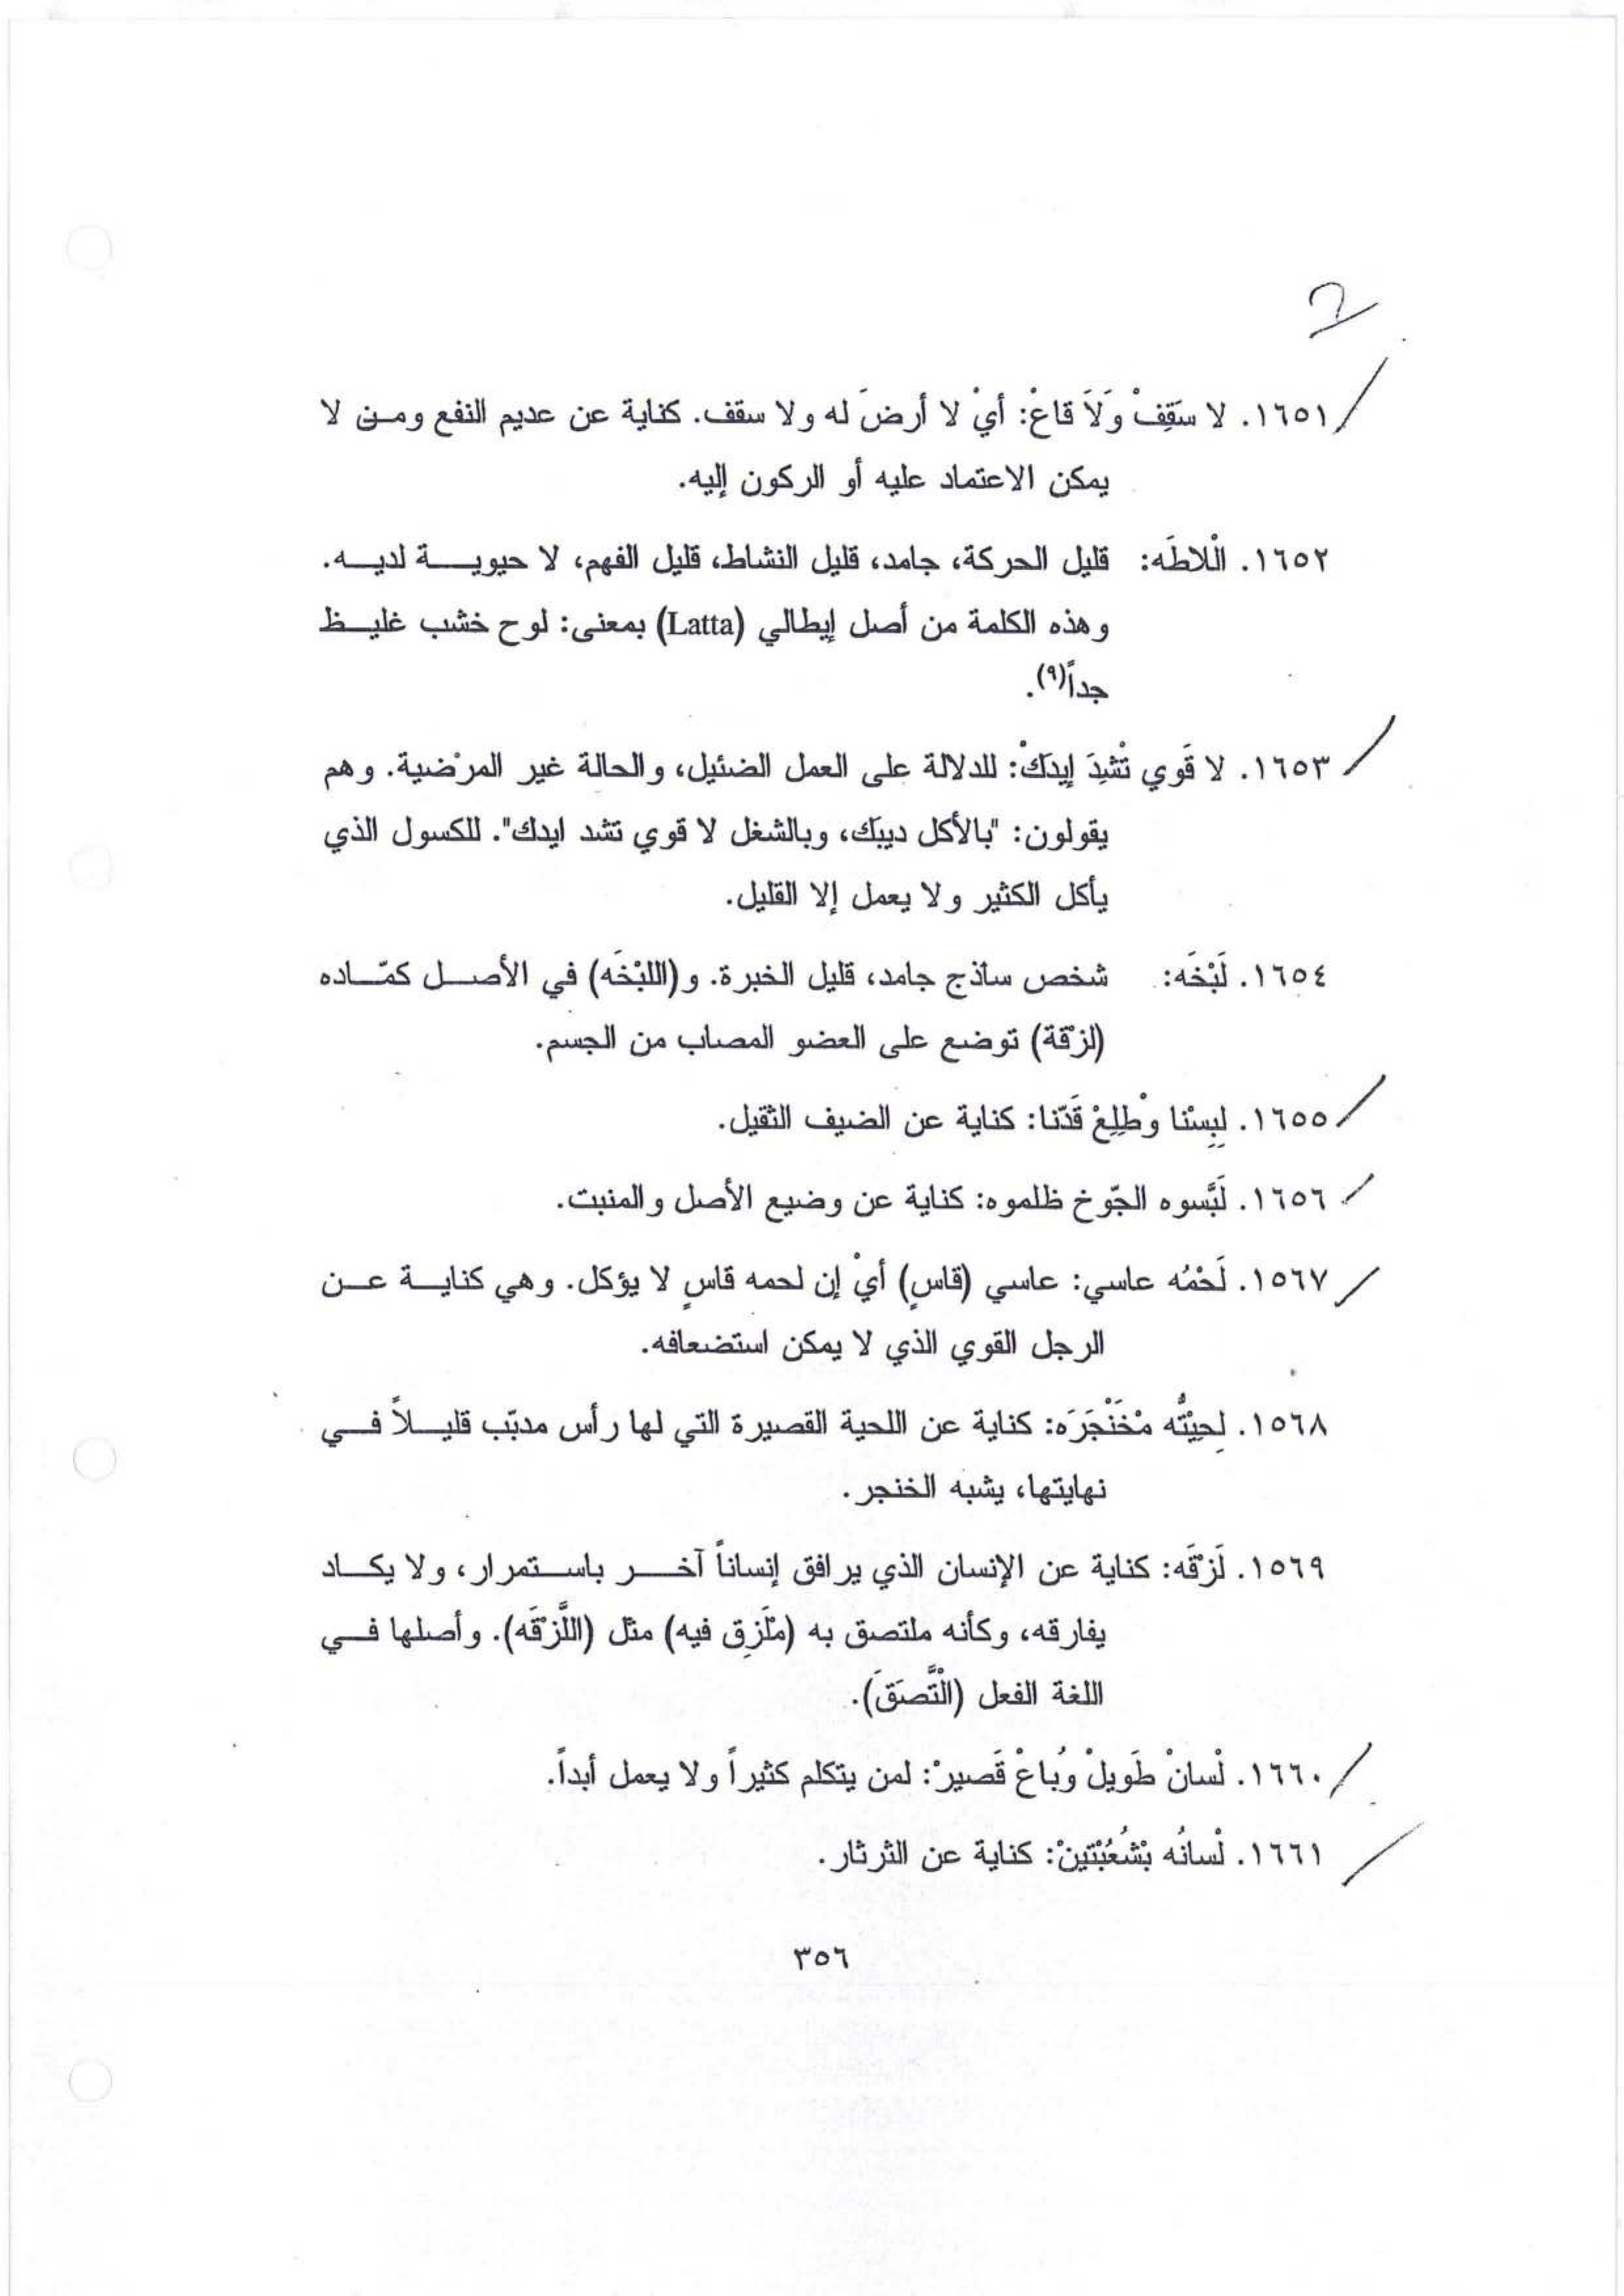 2
١٦٥١. لا سَقِفْ وَلَا قاعْ: أيْ لا أرضَ له ولا سقف. كناية عن عديم النفع ومن لا
يمكن الاعتماد عليه أو الركون إليه.
١٦٥٢. الْلاطَه: قليل الحركة، جامد، قليل النشاط، قليل الفهم، لا حيوية لديه.
وهذه الكلمة من أصل إيطالي (Latta) بمعنى: لوح خشب غليظ
جداً(٩).
١٦٥٣. لا قَوي تْشِدَ إيدَكْ: للدلالة على العمل الضئيل، والحالة غير المرْضية. وهم
يقولون: "بالأكل ديبَك، وبالشغل لا قوي تشد ايدك". للكسول الذي
يأكل الكثير ولا يعمل إلا القليل.
١٦٥٤. لَبْخَه: شخص ساذج جامد، قليل الخبرة. و(اللبْخَه) في الأصل كمّاده
(لزقة) توضع على العضو المصاب من الجسم.
١٦٥٥. لبِسْنا وْطلِعْ قَدّنا: كناية عن الضيف الثقيل.
١٦٥٦. لَبَّسوه الجّوخ ظلموه: كناية عن وضيع الأصل والمنبت.
١٥٦٧. لَحْمُه عاسي: عاسي (قاسٍ) أيْ إن لحمه قاسٍ لا يؤكل. وهي كناية عن
الرجل القوي الذي لا يمكن استضعافه.
١٥٦٨. لِحيْتُّه مْخَنْجَرَه: كناية عن اللحية القصيرة التي لها رأس مدبّب قليلاً في
نهايتها، يشبه الخنجر.
١٥٦٩. لَزْقَه: كناية عن الإنسان الذي يرافق إنساناً آخر باستمرار، ولا يكاد
يفارقه، وكأنه ملتصق به (مْلَزِق فيه) مثل (اللَّزْقَه). وأصلها في
اللغة الفعل (الْتَّصَقَ).
١٦٦٠. لْسانْ طَويلْ وُباعْ قَصيرْ: لمن يتكلم كثيراً ولا يعمل أبداً.
١٦٦١. لْسانُه بْشُعُبْتينْ: كناية عن الثرثار.
٣٥٦